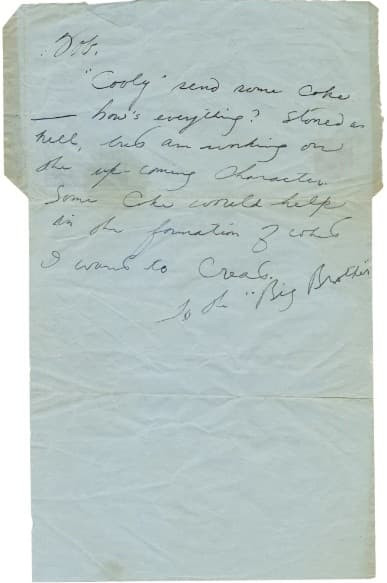 "Cooly" send some Coke
— how's everything? Stoned as
hell, but am working on
the up-coming character.
Some Coke would help
in the formation of what
I want to create.
To the "Big Brother"